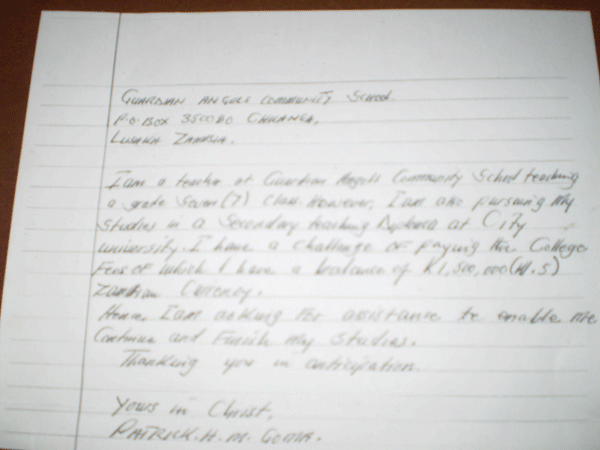 GUARDIAN ANGELS COMMUNITY SCHOOL.
P.O. BOX
LUSAKA ZAMBIA.
I am a teacher at Guardian Angels Community School teaching
a grade Seven (7) class. However, I am also pursuing my
studies in a Secondary teaching Diploma at City
university. I have a challenge of paying the College
Fees of which I have a balance of K1,500,000 (K1.5)
Zambian Currency.
Hence, I am asking for assistance to enable me
Continue and Finish my studies.
Thanking you in anticipation.
Yours in Christ,
PATRICK. H. M. GOMA.